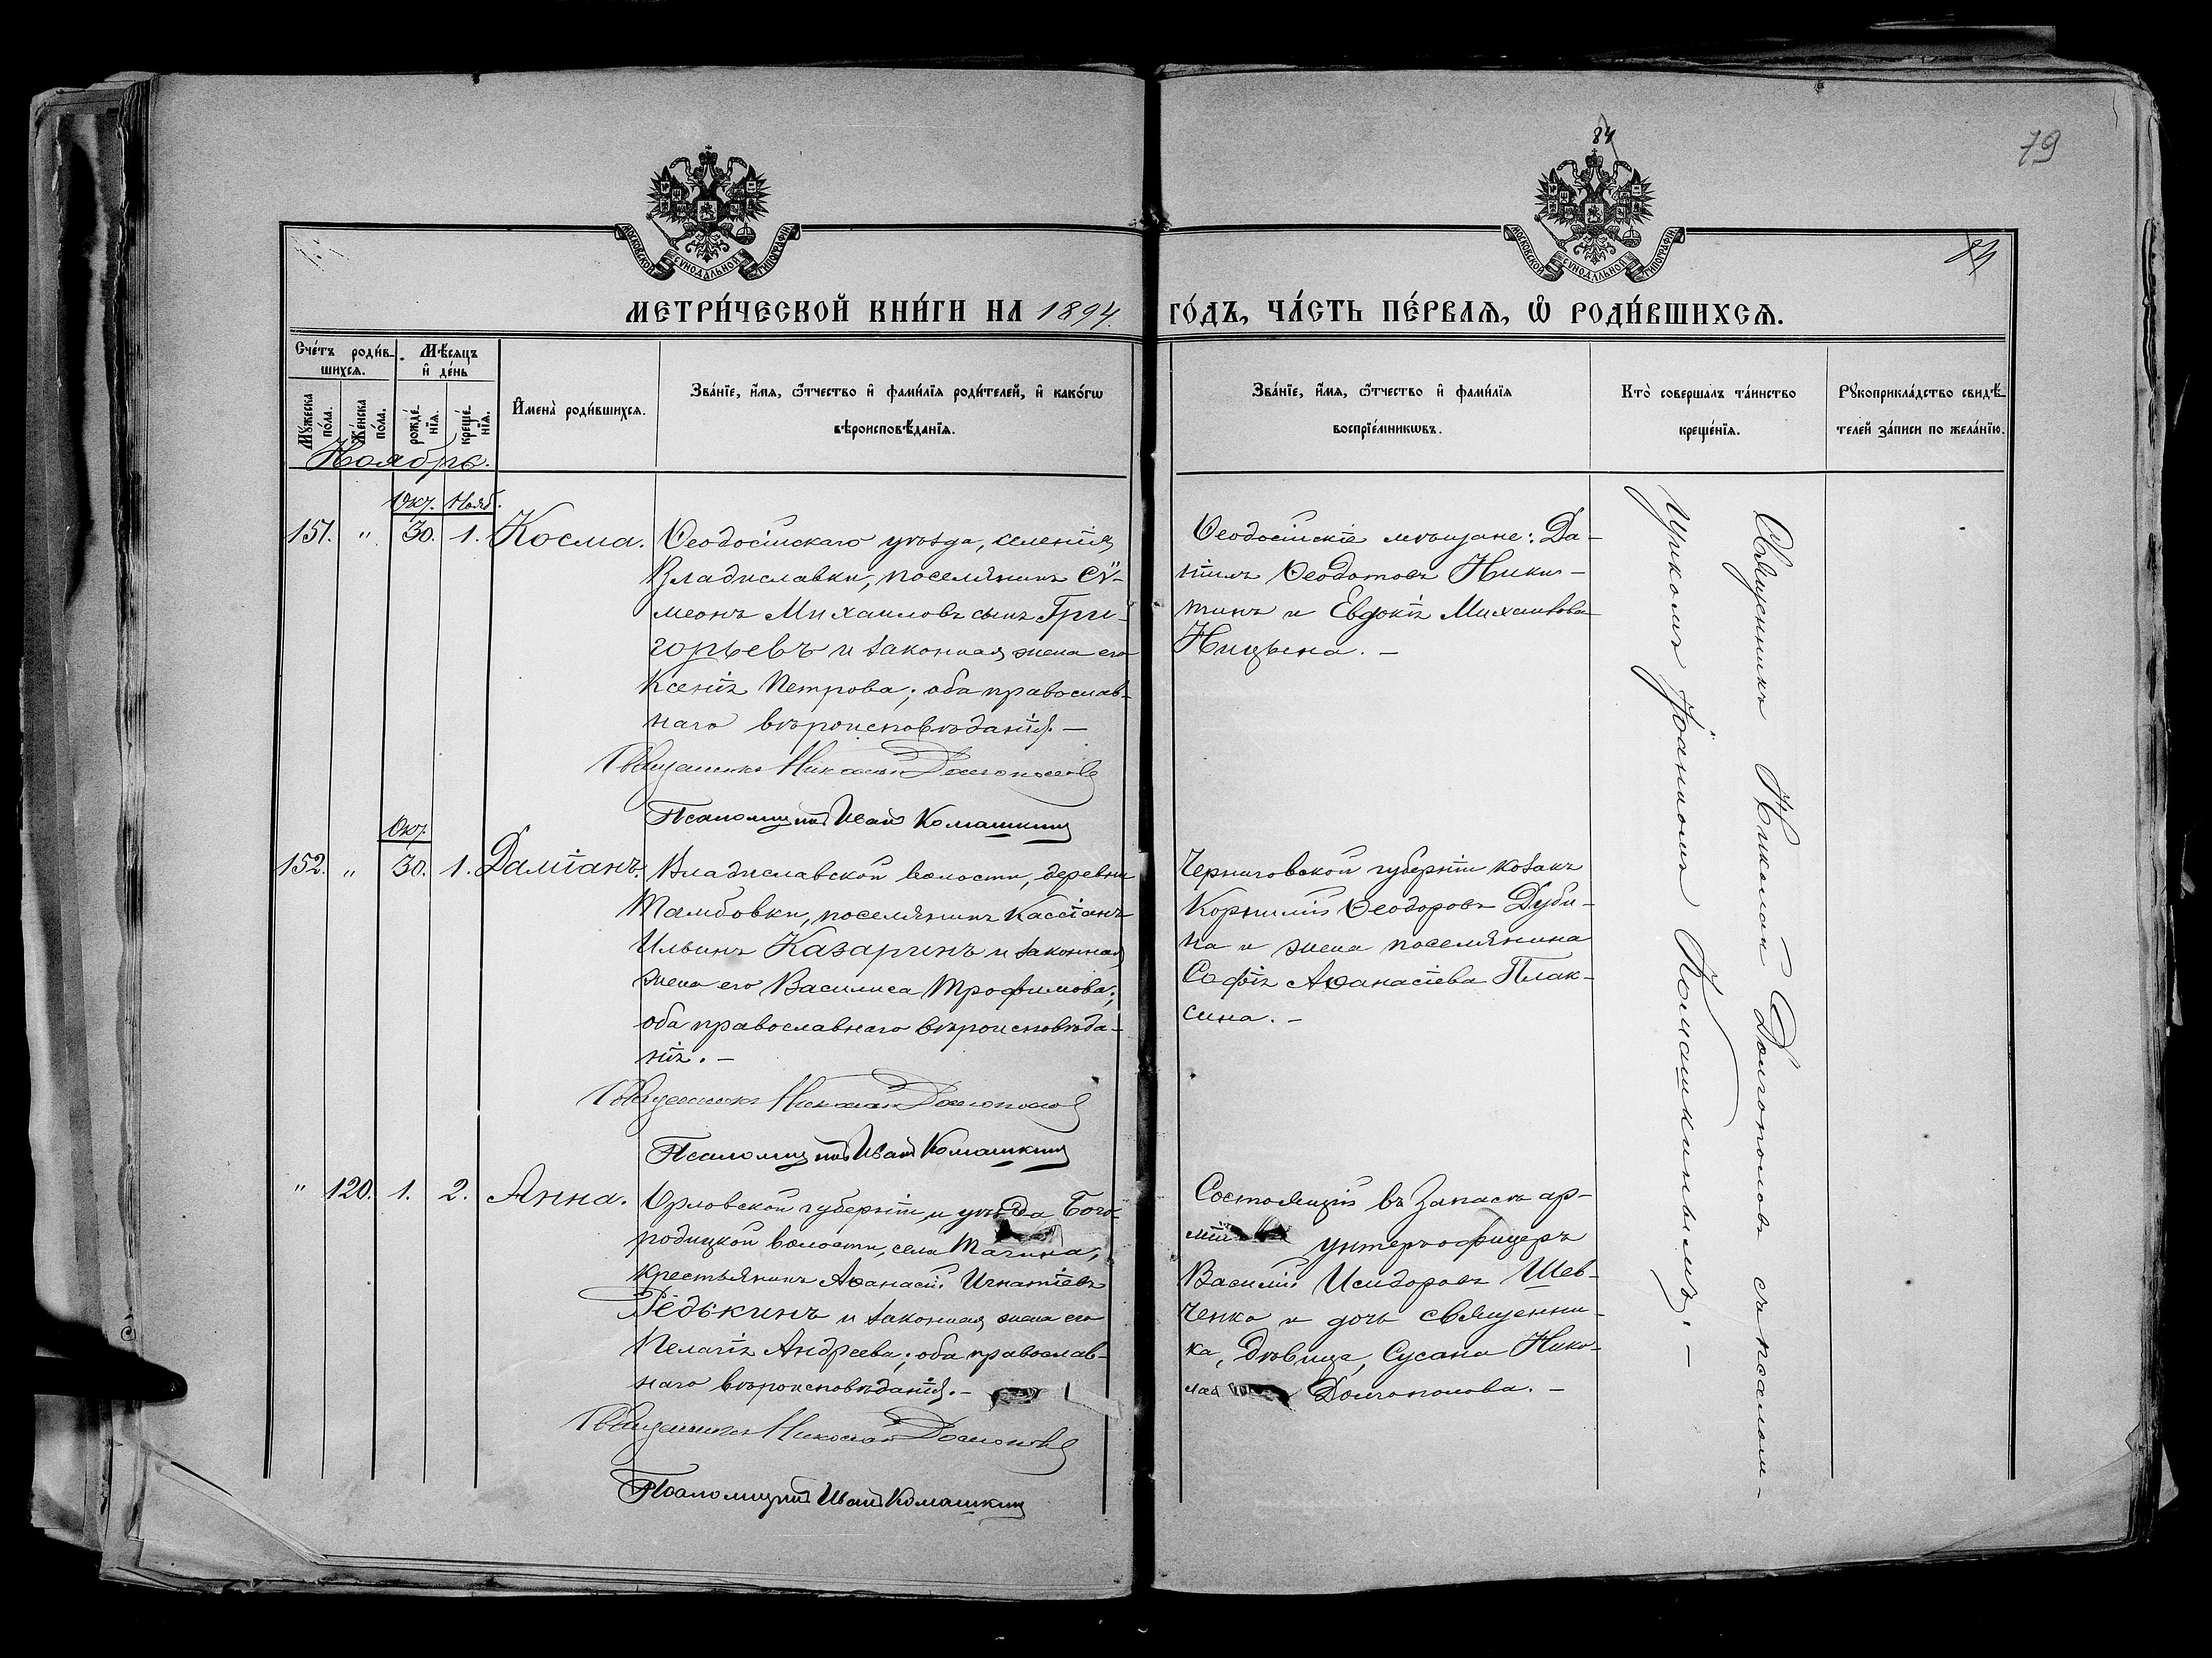 84
79
МОСКОВСКОЙ СѴНОДАЛЬНОЙ ТИПОГРАФІИ
МОСКОВСКОЙ СѴНОДАЛЬНОЙ ТИПОГРАФІИ
84
МЕТРИ́ЧЕСКОЙ КНИ́ГИ НА 1894. ГО́ДЪ, ЧА́СТЬ ПЕ́РВАѦ, Ѡ҆ РОДИ́ВШИХСѦ.
Сче́тъ роди́в-
шихсѧ.
Мѣ́сѧцъ
и҆ де́нь
Мꙋ́жеска
по́ла.
Же́нска
по́ла.
рожде́-
нїѧ.
креще́-
нїѧ.
И҆мена̀ роди́вшихсѧ.
Зва́нїе, и҆́мѧ, ѻ҆́тчество и҆ фами́лїѧ роди́телей, и҆ како́гѡ
вѣроисповѣ́данїѧ.
Зва́нїе, и҆́мѧ, ѻ҆́тчество и҆ фами́лїѧ
воспрїе́мникѡвъ.
Кто̀ соверша́лъ та́инство
креще́нїѧ.
Рꙋкоприкла́дство свидѣ́-
телей за́писи по жела́нїю.
Ноябрь.
Окт. Нояб.
151. " 30. 1. Косма.
Ѳеодосійскаго уѣзда, селенія
Владиславки, поселянинъ Сѵ-
меонъ Михаиловъ сынъ Гри-
горьевъ и законная жена его
Ксенія Петрова; оба православ-
наго вѣроисповѣданія. –
Священникъ Николай Долгополовъ
Псаломщикъ Иванъ Комашкинъ
Ѳеодосійскіе мѣщане: Да-
ніилъ Ѳеодотовъ Ники-
тинъ и Евдокія Михаилова
Ницына. –
Окт.
152. " 30. 1. Даміанъ.
Владиславской волости, деревни
Тамбовки, поселянинъ Кассіанъ
Ильинъ Казаринъ и законная
жена его Василиса Трофимова;
оба православнаго вѣроисповѣда-
нія. –
Священникъ Николай Долгополовъ
Псаломщикъ Иванъ Комашкинъ
Черниговской губерніи козакъ
Корнилій Ѳеодоровъ Дуби-
на и жена поселянина
Софія Аѳанасіева Плак-
сина. –
" 120. 1. 2. Анна.
Орловской губерніи и уѣзда Бого-
родицкой волости, села Тагина,
крестьянинъ Аѳанасій Игнатіевъ
Рѣдькинъ и законная жена его
Пелагія Андреева; оба православ-
наго вѣроисповѣданія. –
Священникъ Николай Долгополовъ
Псаломщикъ Иванъ Комашкинъ
Состоящій въ запасѣ ар-
міи унтеръ-офицеръ
Василій Исидоровъ Шев-
ченко и дочь священни-
ка, дѣвица, Сусана Нико-
лая Долгополова. –
Священникъ Николай Долгополовъ съ псалом-
щикомъ Іоанномъ Комашкинымъ. –